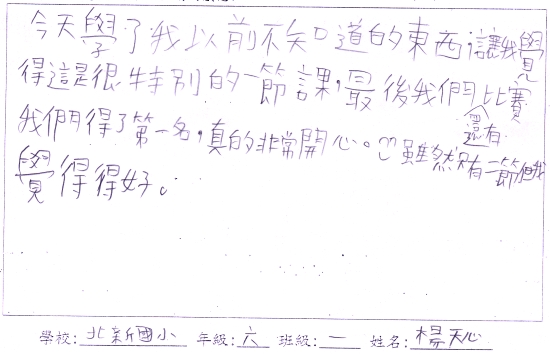 今天學了我以前不知道的東西,讓我覺
得這是很特別的一節課,最後我們比賽
我們得了第一名,真的非常開心。雖然只有一節但我
還有
覺得得好。
學校:北新國小 年級:六 班級:一 姓名:楊天心